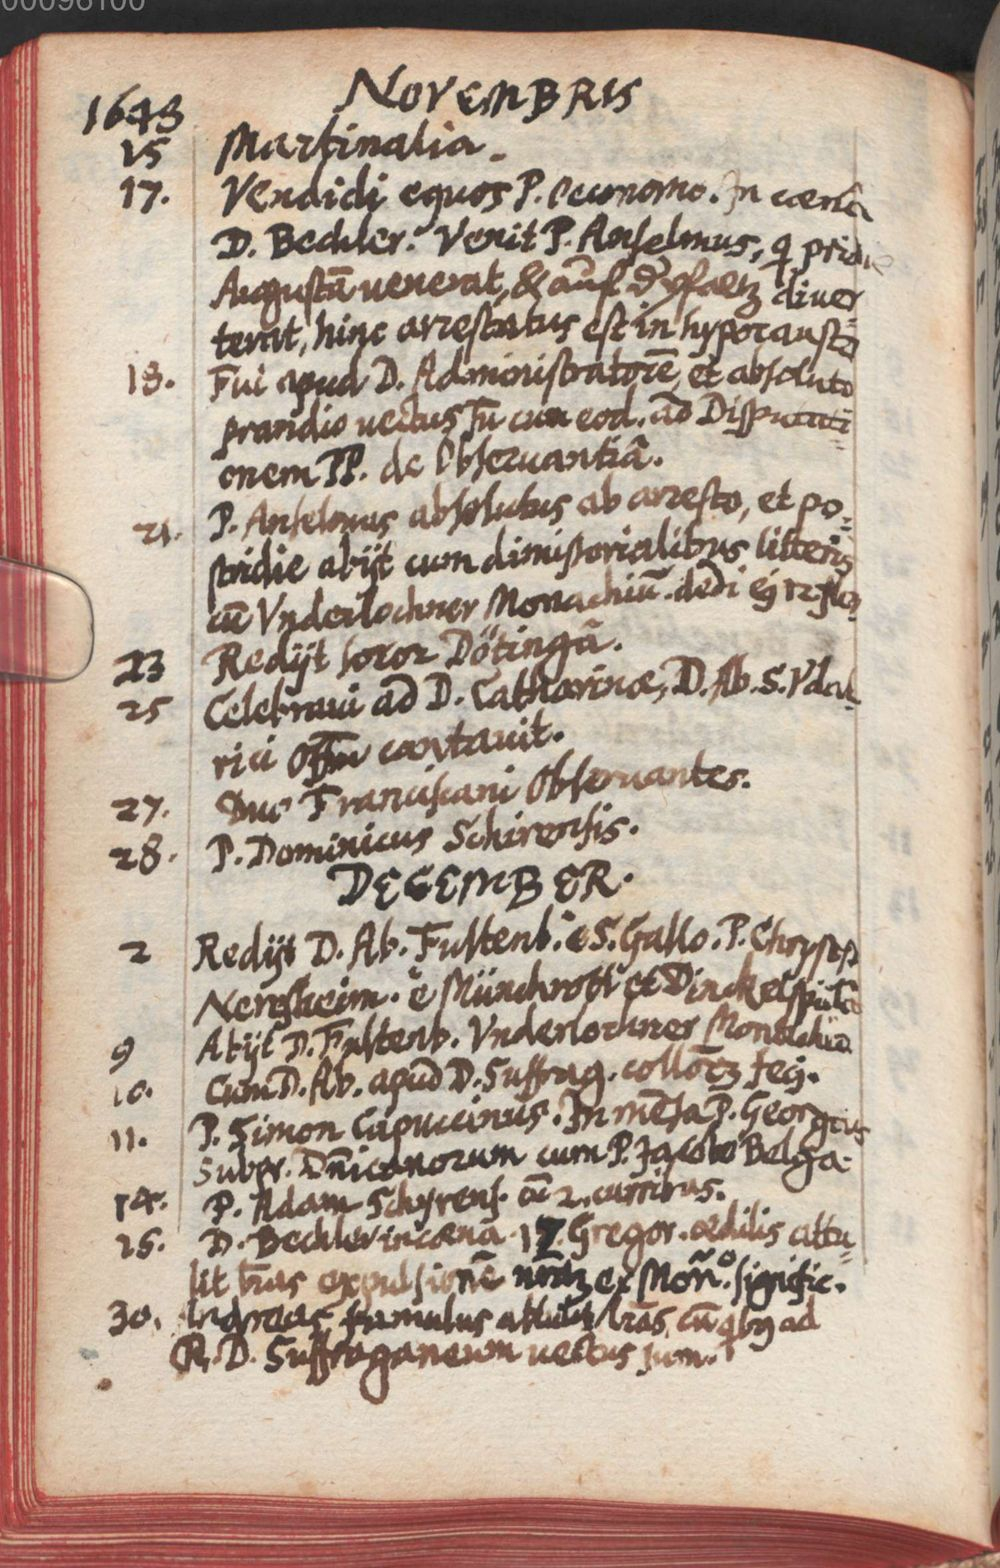 00096100
NOVEMBRIS
1643
15 Martinalia.
17. Vendidi equos P. Oeconomo. In coena
D. Bechler. Venit P. Anselmus, q pridie
Augustā venerat, & diver
terat, hinc arrestatus est in hypocausto
18. Fui apud D. Administratorē, et absoluto
prandio vectus sū cum eod. ad Disputati
onem PP. de Observantiâ.
21. P. Anselmus absolutus ab arresto, et po-
stridie abijt cum dimissorialibus litteris
cū Vnderlochner Monachiū. dedi ei
23 Redijt soror Dötingâ.
25 Celebravi ad D. Catharinae, D. Ab. S. Vdal-
rici offm cantavit.
27. Duo Franciscani Observantes.
28. P. Dominicus Schirensis.
DECEMBER.
2 Redijt D. Ab. Fultenb. è S. Gallo. P. Chrysost
Neresheim. è Münchrott et Dinckelspühl
9 Abijt D. Fultenb. Vnderlochner Monachiū
10. Cum D. Ab. apud D. Suffrag. feci.
11. P. Simon Capuccinus. In mēsa P. Georgius
Super. Dnicanorum cum P. Jacobo Belga.
14. P. Adam Schyrens. cū 2. curribus.
16. D. Bechler in coena. 17. Gregor. aedilis attu-
lit lras expulsionē ex Mon. signific.
30. Andreas famulus attulit lras, cū qbg ad
R. D. Suffraganeum vectus sum.